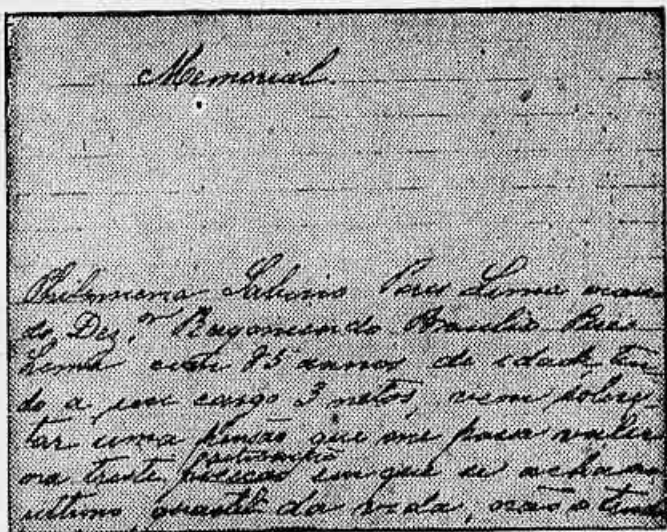 Memorial.
Philomena Sabino Pires Lima
do Dez.or Raymundo Braulio Pires
Lima com 85 annos de idade ten
do a seu cargo 3 netos, vem solici
tar uma pensão que me possa valer
na triste em que se acha no
ultimo quartel da vida, não